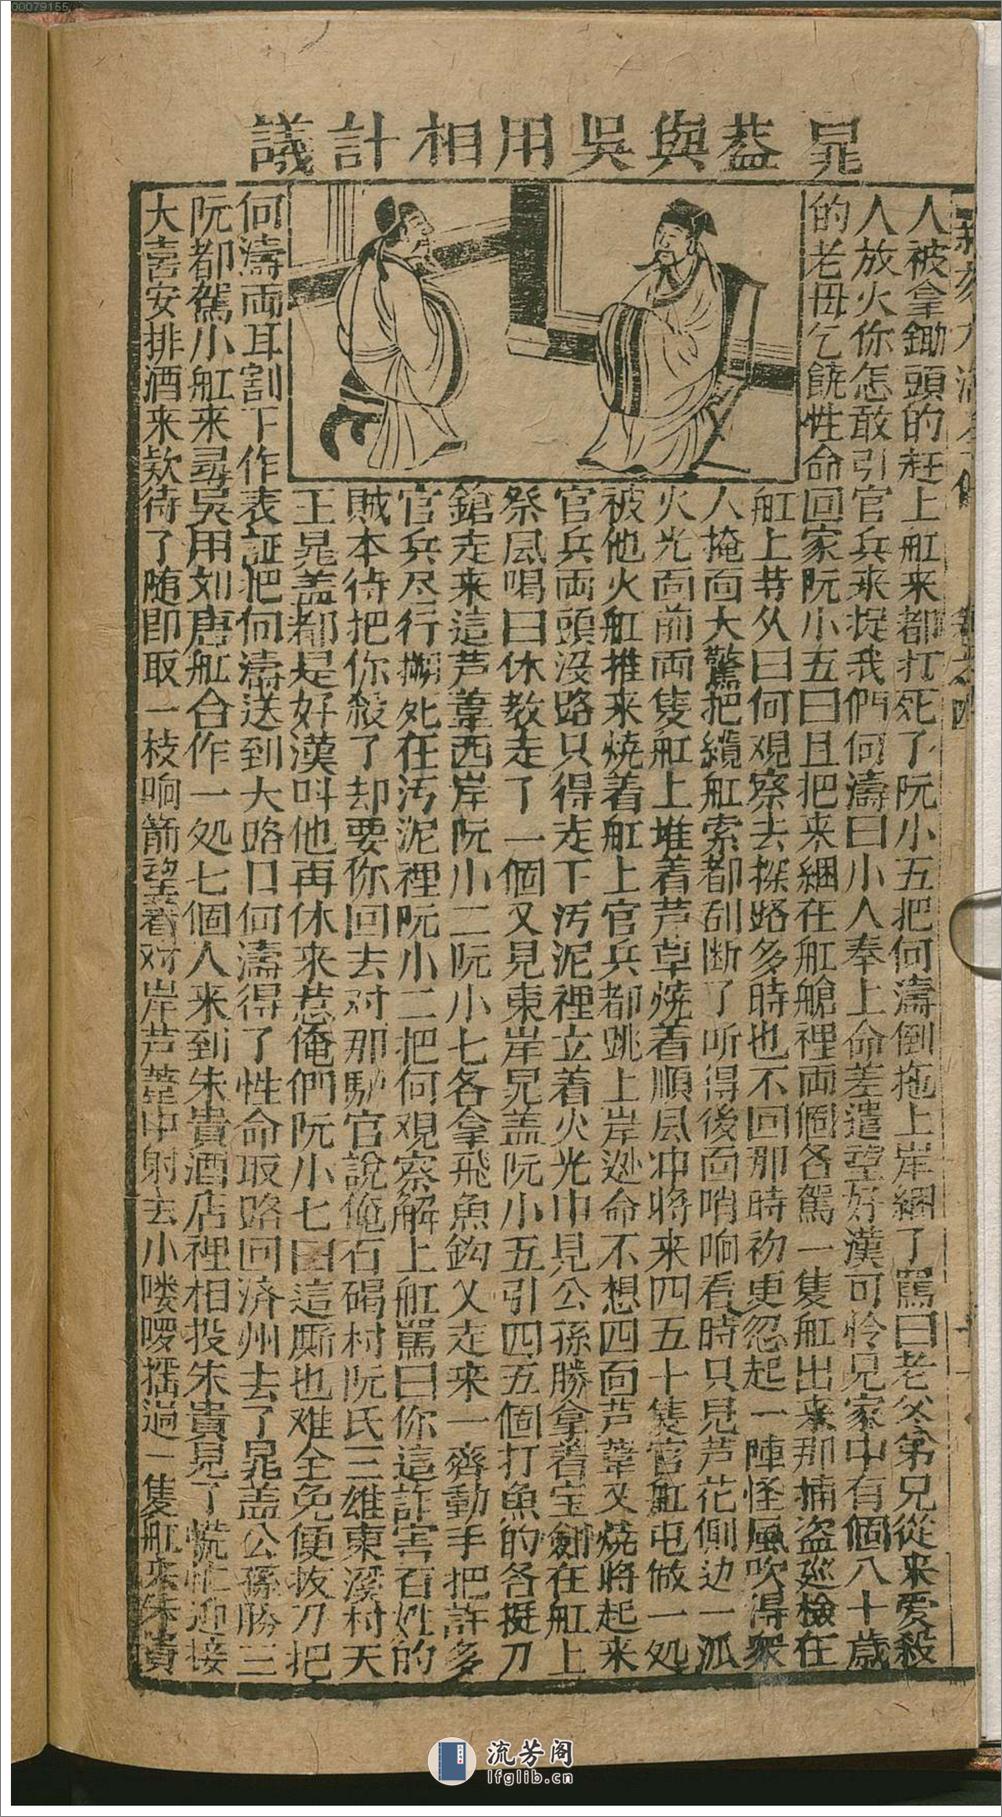 00079155
晁葢與吳用相計議
人被拿鋤頭的赶上舡来都打死了阮小五把何濤倒拖上岸綑了罵曰老爷弟兄從来爱殺
人放火你怎敢引官兵来捉我們何濤曰小人奉上命差遣望好漢可怜見家中有個八十歲
的老母乞饒性命回家阮小五曰且把来綑在舡艙裡両個各駕一隻舡出来那捕盗廵檢在
舡上昔从曰何观察去探路多時也不回那時初更忽起一陣怪風吹得衆
人掩面大驚把纜舡索都刮断了听得後面哨响看時只見芦花側边一派
火光面前両隻舡上堆着芦草燒着順風冲將来四五十隻官舡屯做一処
被他火舡推来燒着舡上官兵都跳上岸逊命不想四面芦葦又燒將起来
官兵両頭没路只得走下汚泥裡立着火光中見公孫勝拿着宝劍在舡上
祭風喝曰休教走了一個又見東岸晁盖阮小五引四五個打魚的各挺刀
鎗走来這芦葦西岸阮小二阮小七各拿飛魚鈎又走来一齊動手把許多
官兵尽行搠死在汚泥裡阮小二把何观察觧上舡罵曰你這詐害百姓的
賊本待把你殺了却要你回去对那馿官說俺石碣村阮氏三雄東溪村天
王晁盖都是好漢叫他再休来惹俺們阮小七曰這厮也难全免便抜刀把
何濤両耳割下作表証把何濤送到大路口何濤得了性命取路回済州去了晁盖公孫勝三
阮都駕小舡来尋吳用刘唐舡合作一処七個人来到朱貴酒店裡相投朱貴見了慌忙迎接
大喜安排酒来欵待了随即取一枝响箭望着对岸芦葦中射去小喽啰摇過一隻舡来朱貴
流芳阁
lfglib.cn